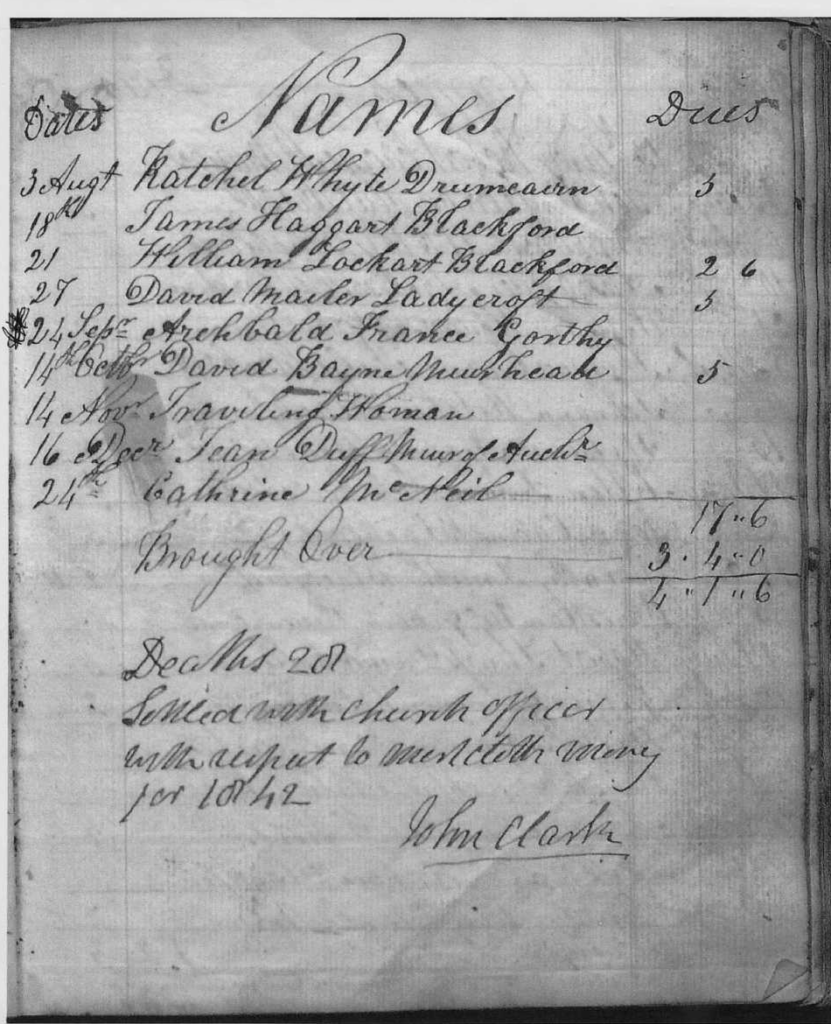 Dates Names Dues
3 Augt Ratchel Whyte Drumcairn 5
18th James Haggart Blackford
21 William Lockart Blackford 2 6
27 David Mailer Ladycroft 5
24 Sepr Archbald France Gorthy
14th Octbr David Bayne Muirhead 5
14 Novr Traveling Woman
16 Decr Jean Duff Muir of Auchr
24th Cathrine McNeil
17 " 6
Brought Over 3 . 4 " 0
4 " 1 " 6
Deaths 28
Settled with church officer
with respect to mortcloth money
for 1842
John Clark